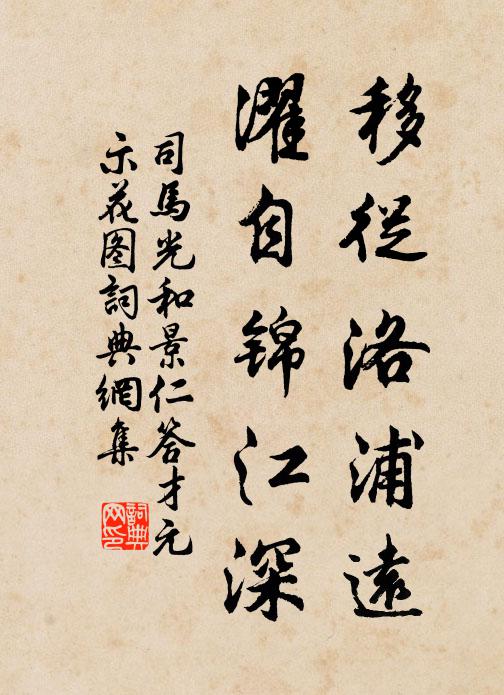 移從洛浦遠
濯自錦江深
司馬光和景仁答才元
示花图詞典網集
詞典网印